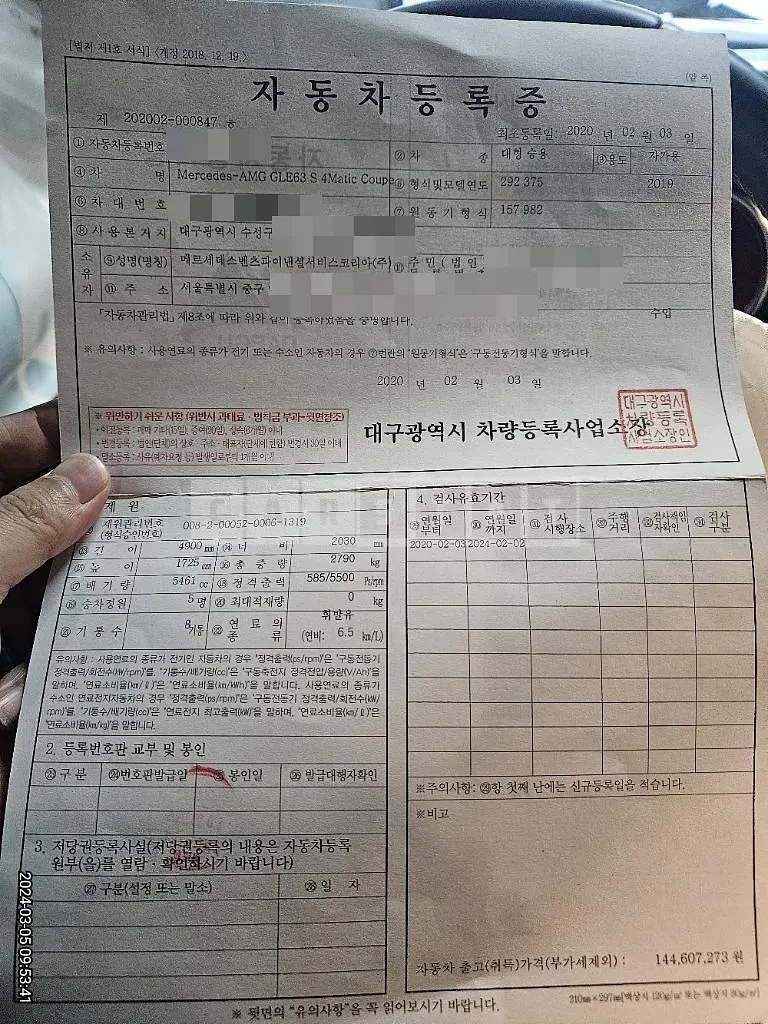 [별지 제1호 서식] <개정 2018. 12. 19.>
(앞 쪽)
자 동 차 등 록 증
제 202002-000847 호
최초등록일: 2020 년 02 월 03 일
① 자동차등록번호 ② 차 종 대형 승용 ③용도 자가용
④ 차 명 Mercedes-AMG GLE63 S 4Matic Coupe ⑤ 형식및모델연도 292 375 2019
⑥ 차 대 번 호 ⑦ 원 동 기 형 식 157 982
⑧ 사 용 본 거 지 대구광역시 수성구
소유자 ⑨성명(명칭) 메르세데스벤츠파이낸셜서비스코리아(주) ⑩ 주 민 ( 법 인
⑪ 주 소 서울특별시 중구
「자동차관리법」 제8조에 따라 위와 같이 등록하였음을 증명합니다.
수입
※ 유의사항 : 사용연료의 종류가 전기 또는 수소인 자동차의 경우 ⑦번란의 '원동기형식'은 '구동전동기형식'을 말합니다.
2020 년 02 월 03 일
※ 위반하기 쉬운 사항 (위반시 과태료ㆍ범칙금 부과-뒷면참조)
• 이전등록 : 매매 15일, 증여(20일), 상속(6개월) 이내
• 변경등록 : 법인(단체)의 상호ㆍ주소ㆍ대표자(단체에 한함) 변경시 30일 이내
• 말소등록 : 사유(폐차요청 등) 발생일로부터 1개월 이내
대구광역시 차량등록사업소장
대구광역시
차량등록
사업소장인
제 원
제원관리번호 (형식승인번호) 008-2-00052-0006-1319
⑬ 길 이 4900 mm ⑭ 너 비 2030 mm
⑮ 높 이 1725 mm ⑯ 총 중 량 2790 kg
⑰ 배 기 량 5461 cc ⑱ 정 격 출 력 585/5500 Ps/rpm
⑲ 승차정원 5 명 ⑳ 최대적재량 0 kg
㉑ 기 통 수 8기통 ㉒ 연 료 의 종 류 휘발유 (연비: 6.5 km/L)
유의사항 : 사용연료의 종류가 전기인 자동차의 경우 "정격출력(ps/rpm)"은 "구동전동기
정격출력/회전수(kW/rpm)"를, "기통수/배기량(cc)"은 "구동축전지 정격전압/용량(V/Ah)"을
말하며, "연료소비율(㎞/ℓ)"은 "연료소비율(km/kWh)"을 말합니다. 사용연료의 종류가
수소인 연료전지자동차의 경우 "정격출력(ps/rpm)"은 "구동전동기 정격출력/회전수(kW/
rpm)"를, "기통수/배기량(cc)"은 "연료전지 최고출력(kW)"을 말하며, "연료소비율(㎞/ℓ)"은
"연료소비율(㎞/kg)"을 말합니다.
2. 등록번호판 교부 및 봉인
㉓구 분 ㉔번호판발급일 ㉕ 봉인일 ㉖ 발급대행자확인
3. 저당권등록사실(저당권등록의 내용은 자동차등록
원부(을)를 열람ㆍ확인하시기 바랍니다)
㉗ 구분(설정 또는 말소) ㉘ 일 자
4. 검사유효기간
㉙연월일 부터 ㉚연월일 까지 ㉛검 사 시행장소 ㉜주행 거리 ㉝검사책임자확인 ㉞검사 구분
2020-02-03 2024-02-02
※주의사항: ㉙항 첫째 난에는 신규등록일을 적습니다.
※비고
자동차 출고(취득)가격(부가세제외) : 144,607,273 원
210㎜×297㎜[백상지 120g/㎡ 또는 백상지 80g/㎡]
※ 뒷면의 "유의사항"을 꼭 읽어보시기 바랍니다.
2024-03-05 09:53:41